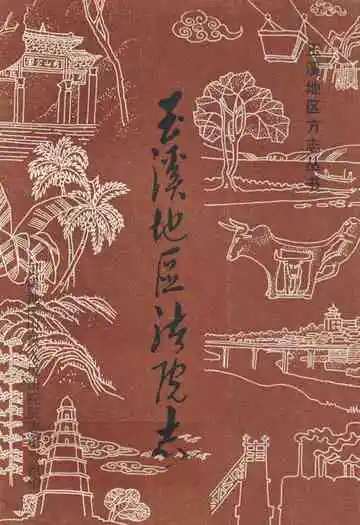 玉溪地区方志丛书
玉溪地區法院志